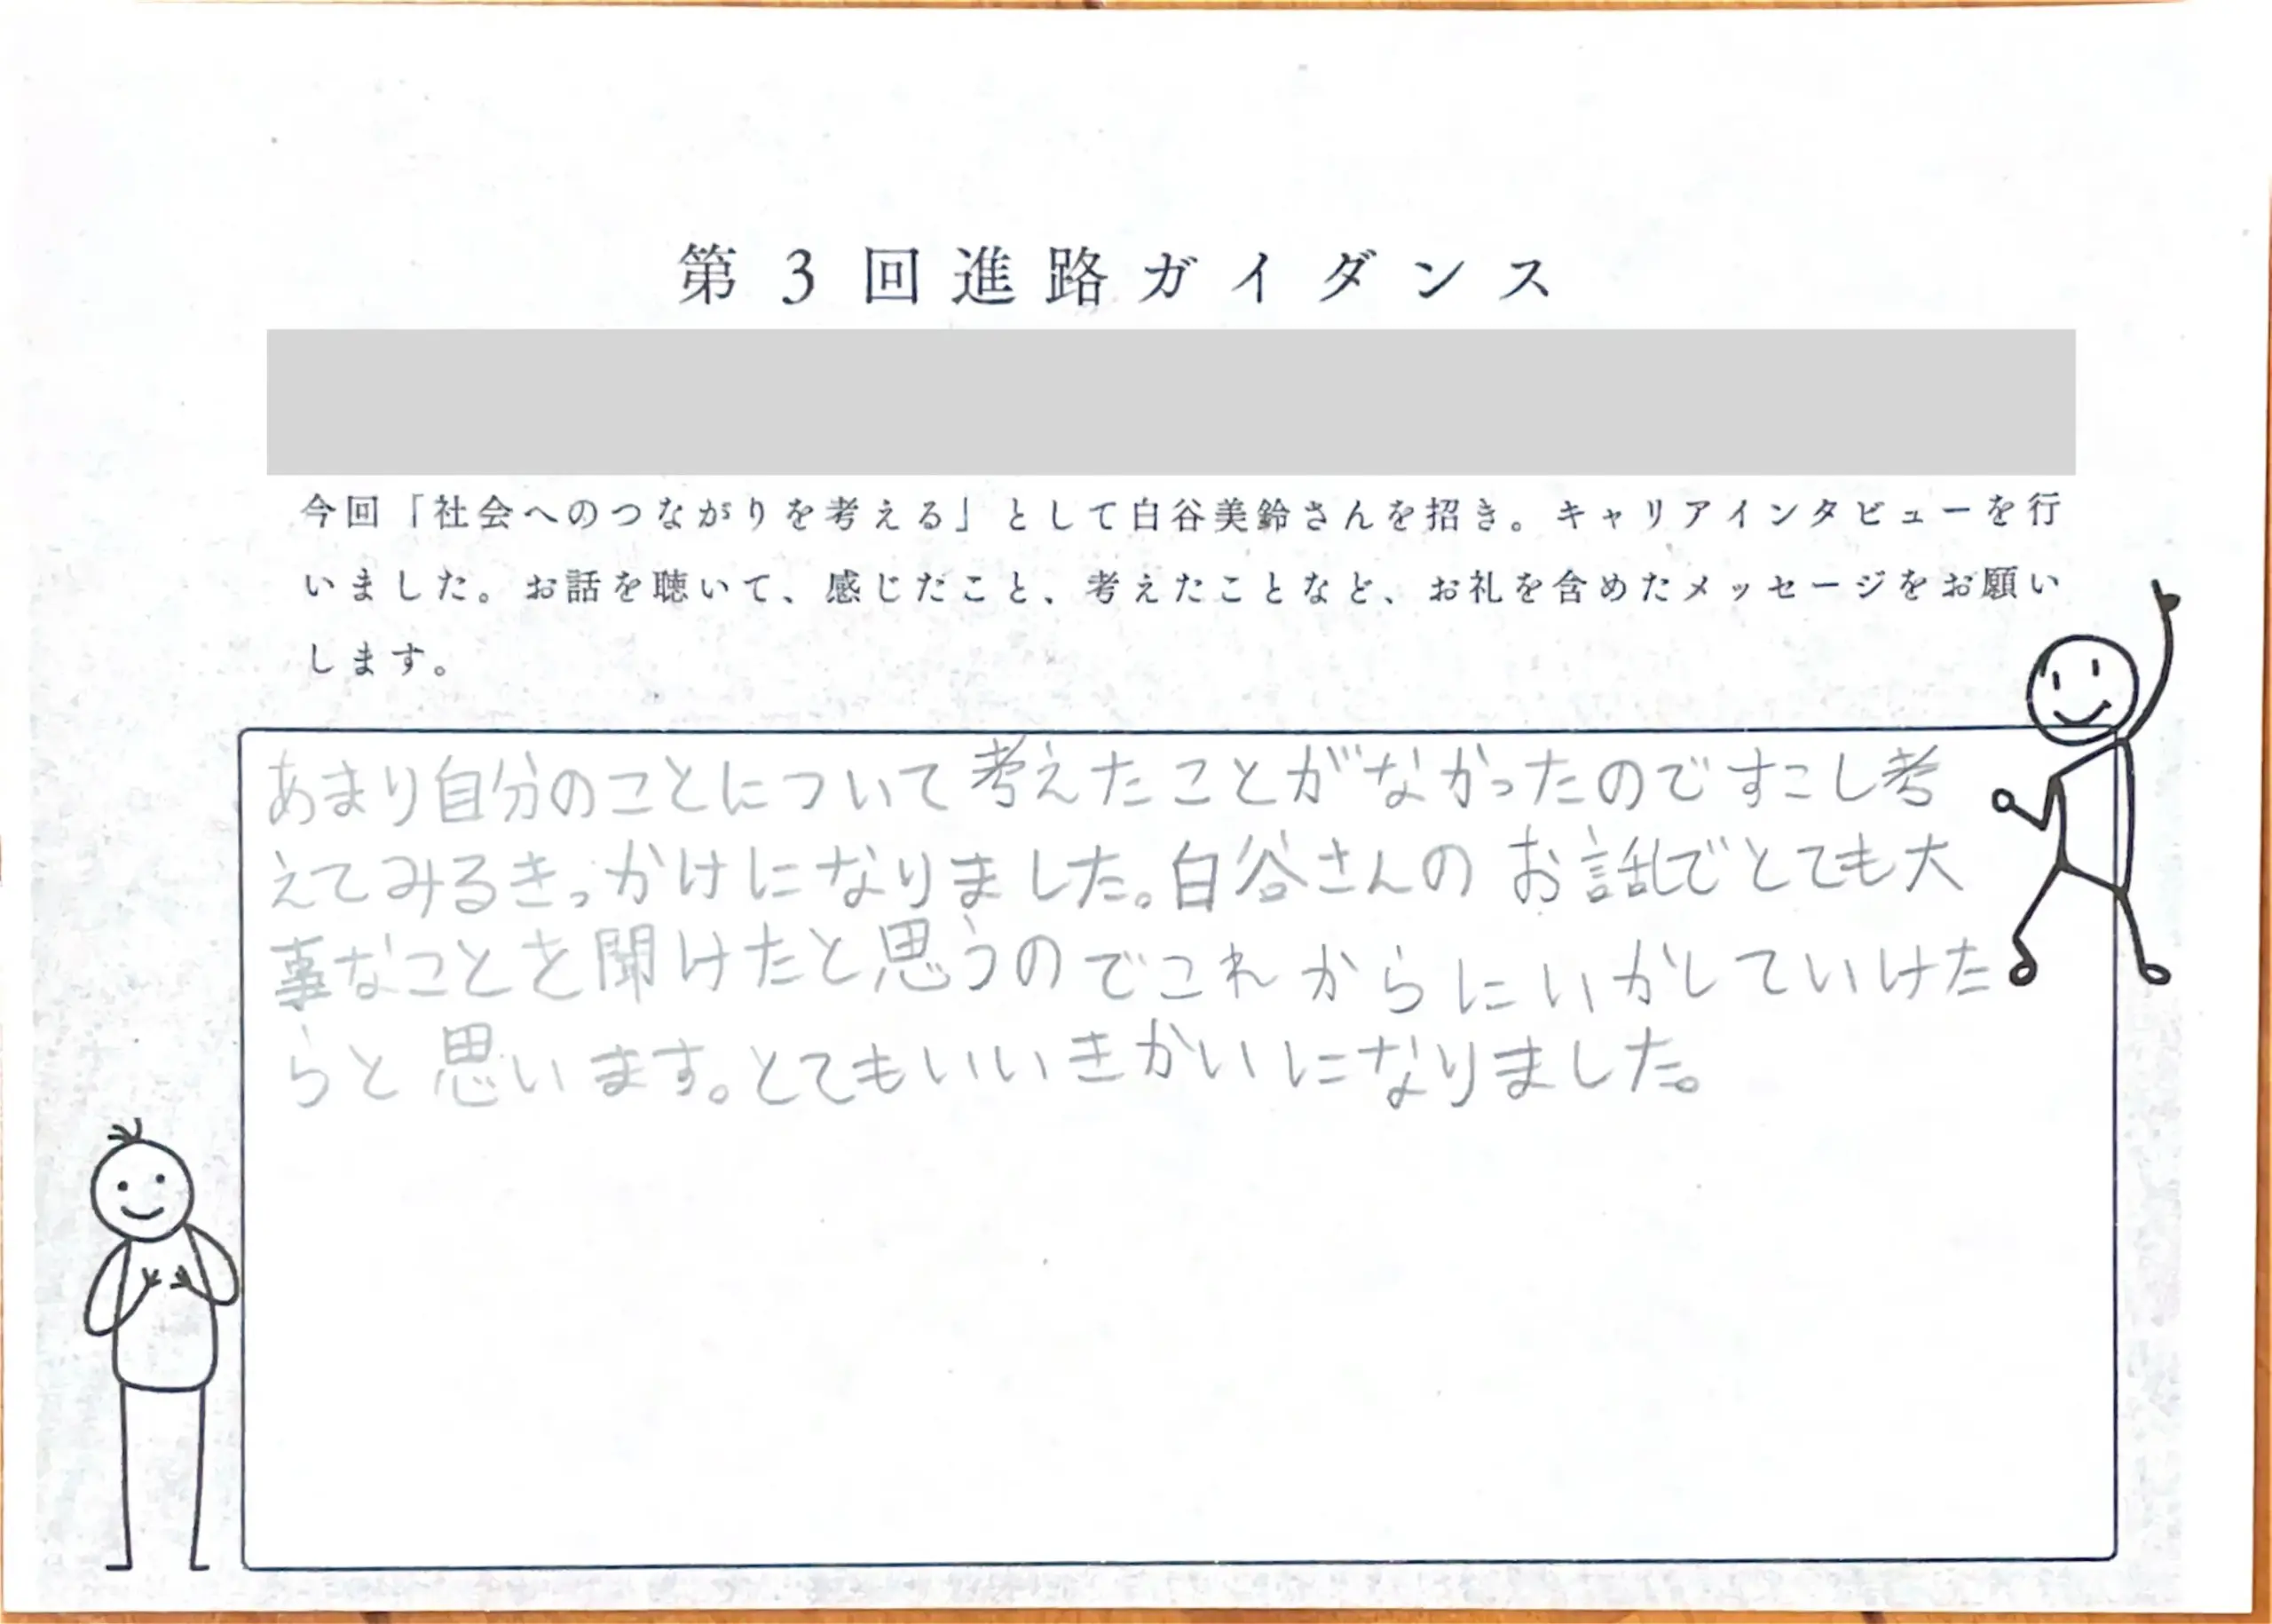 第3回進路ガイダンス
今回「社会へのつながりを考える」として白谷美鈴さんを招き。キャリアインタビューを行
いました。お話を聴いて、感じたこと、考えたことなど、お礼を含めたメッセージをお願い
します。
あまり自分のことについて考えたことがなかったのですこし考
えてみるきっかけになりました。白谷さんのお話でとても大
事なことを聞けたと思うのでこれからにいかしていけた
らと思います。とてもいいきかいになりました。